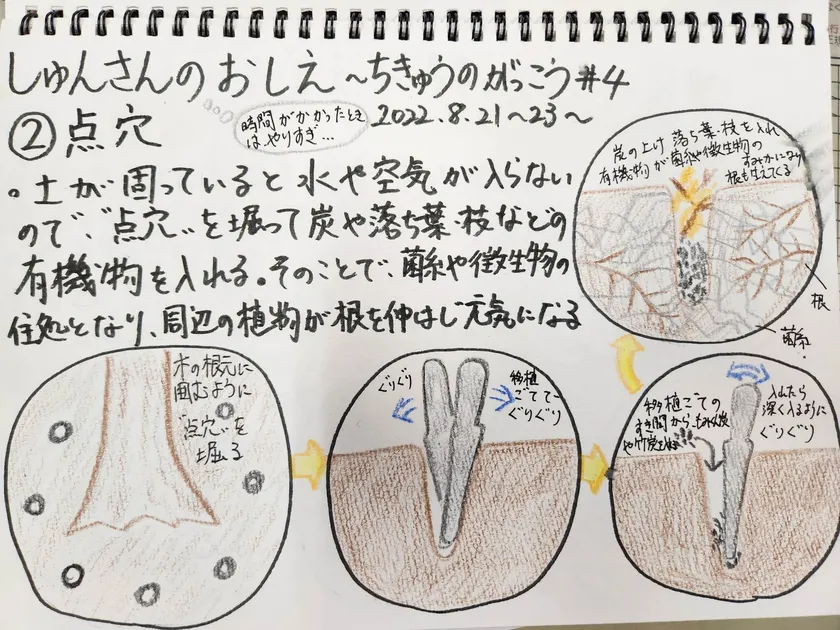 しゅんさんのおしえ〜ちきゅうのがっこう#4
時間がかかったとき
はやりすぎ…
2022.8.21〜23〜
②点穴
・土が固っていると水や空気が入らない
ので、"点穴"を掘って炭や落ち葉・枝などの
有機物を入れる。そのことで、菌糸や微生物の
住処となり、周辺の植物が根を伸ばし元気になる
木の根元に
囲むように
"点穴"を
掘る
ぐりぐり
移植
ごてで
ぐりぐり
移植ごての
すき間から
や竹炭を
入れたら
深く入るように
ぐりぐり
炭の上に落ち葉・枝を入れ
有機物が菌糸や微生物の
すみかになり
根も生えてくる
根
菌糸